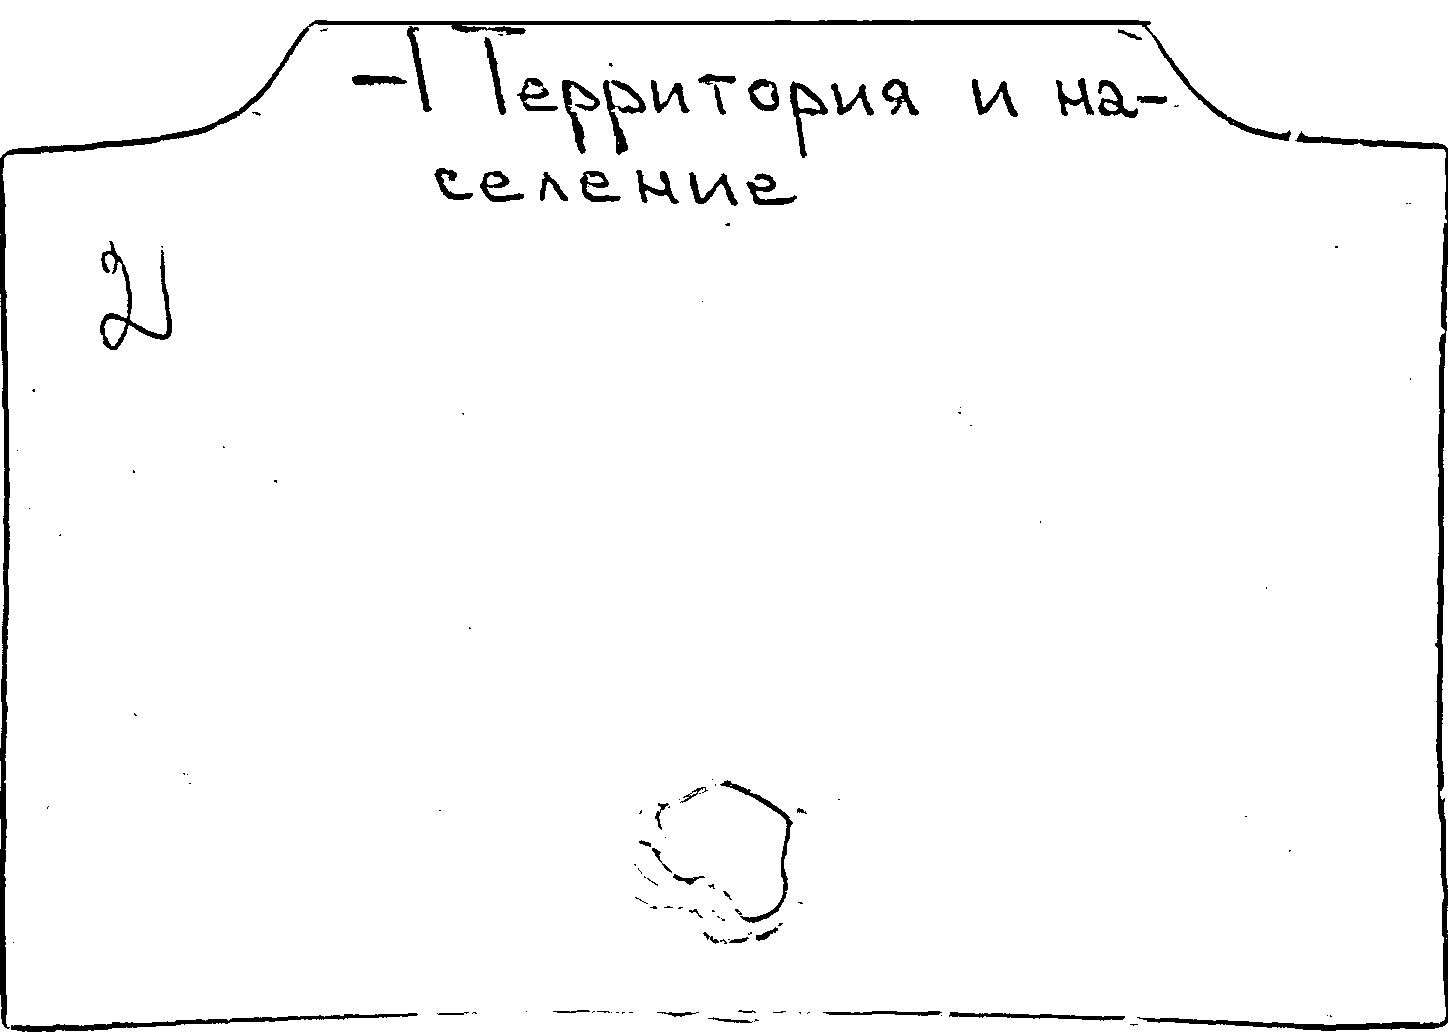 -1 Территория и на-
селение
21